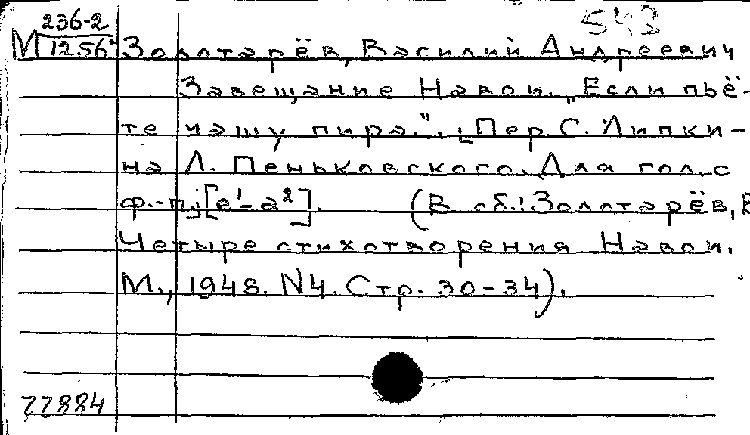 236-2
543
М 1256 Золотарёв, Василий Андреевич
Завещание Навои. "Если пьё-
те чашу пира.". Пер. С. Липки-
на Л. Пеньковского. Для гол. с
ф.-п. [e¹-a²]. (В сб.: Золотарёв, В
Четыре стихотворения Навои.
М., 1948. N4. Стр. 30-34).
77884